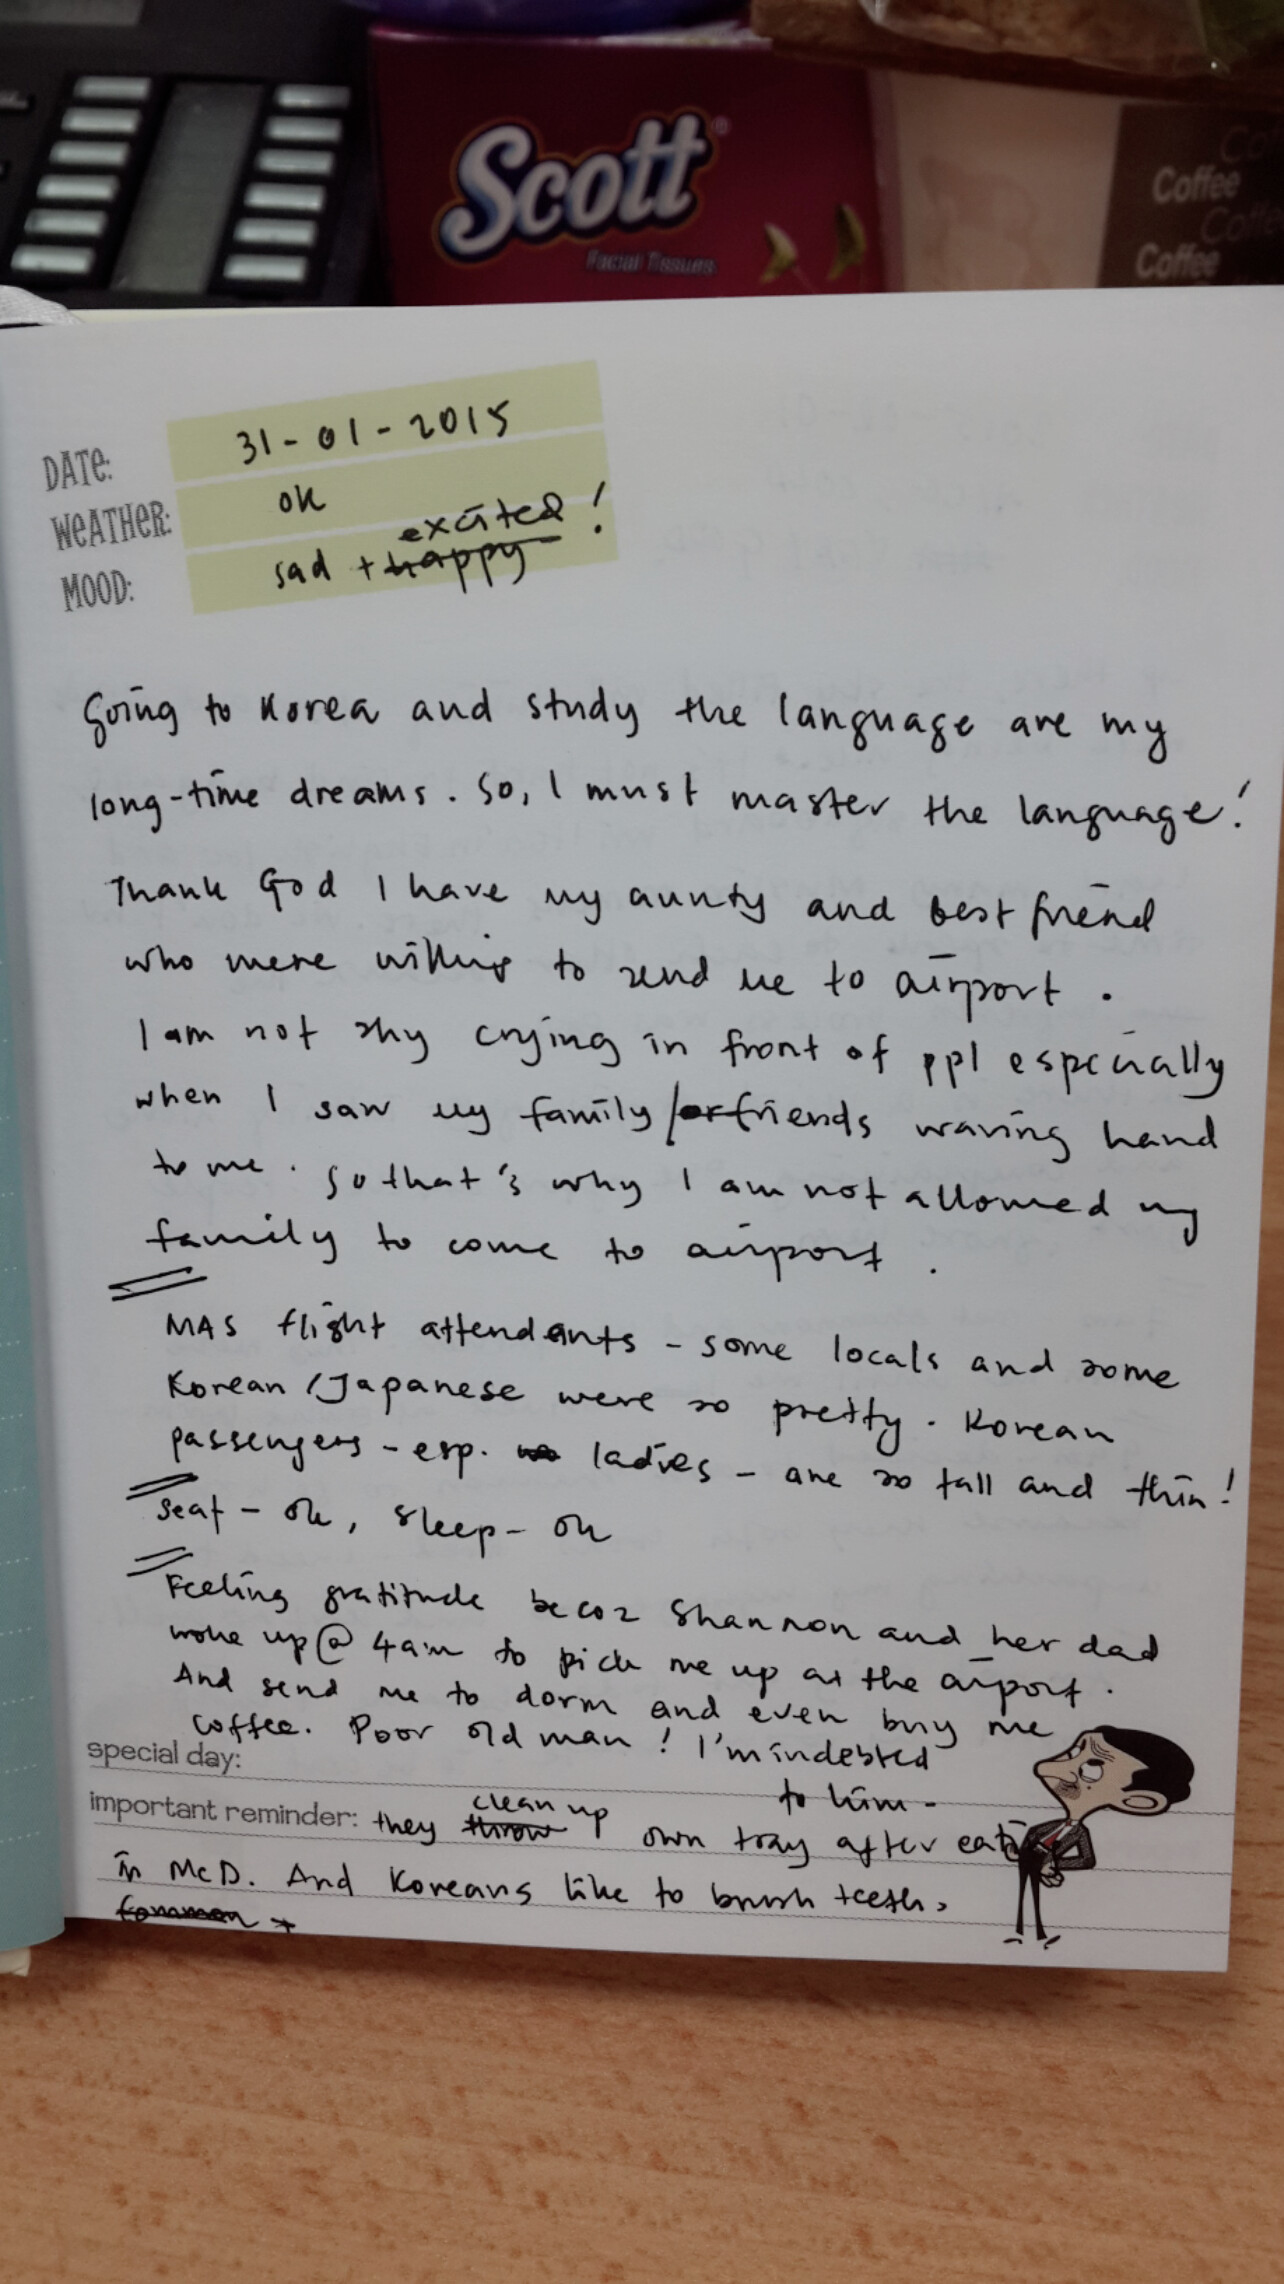 Scott
Facial Tissues
Coffee
Coffee
DATE: 31-01-2015
WEATHER: ok
MOOD: sad + happy excited!
Going to Korea and study the language are my
long-time dreams. So, I must master the language!
Thank God I have my aunty and best friend
who were willing to send me to airport.
I am not shy crying in front of ppl especially
when I saw my family/or friends waving hand
to me. So that's why I am not allowed my
family to come to airport.
MAS flight attendants - some locals and some
Korean/Japanese were so pretty. Korean
passengers - esp. ladies - are so tall and thin!
Seat - ok, sleep - ok
Feeling gratitude becoz Shannon and her dad
woke up @ 4am to pick me up at the airport.
And send me to dorm and even buy me
coffee. Poor old man! I'm indebted
to him.
special day:
important reminder: they throw clean up own tray after eating
in McD. And Koreans like to brush teeth.